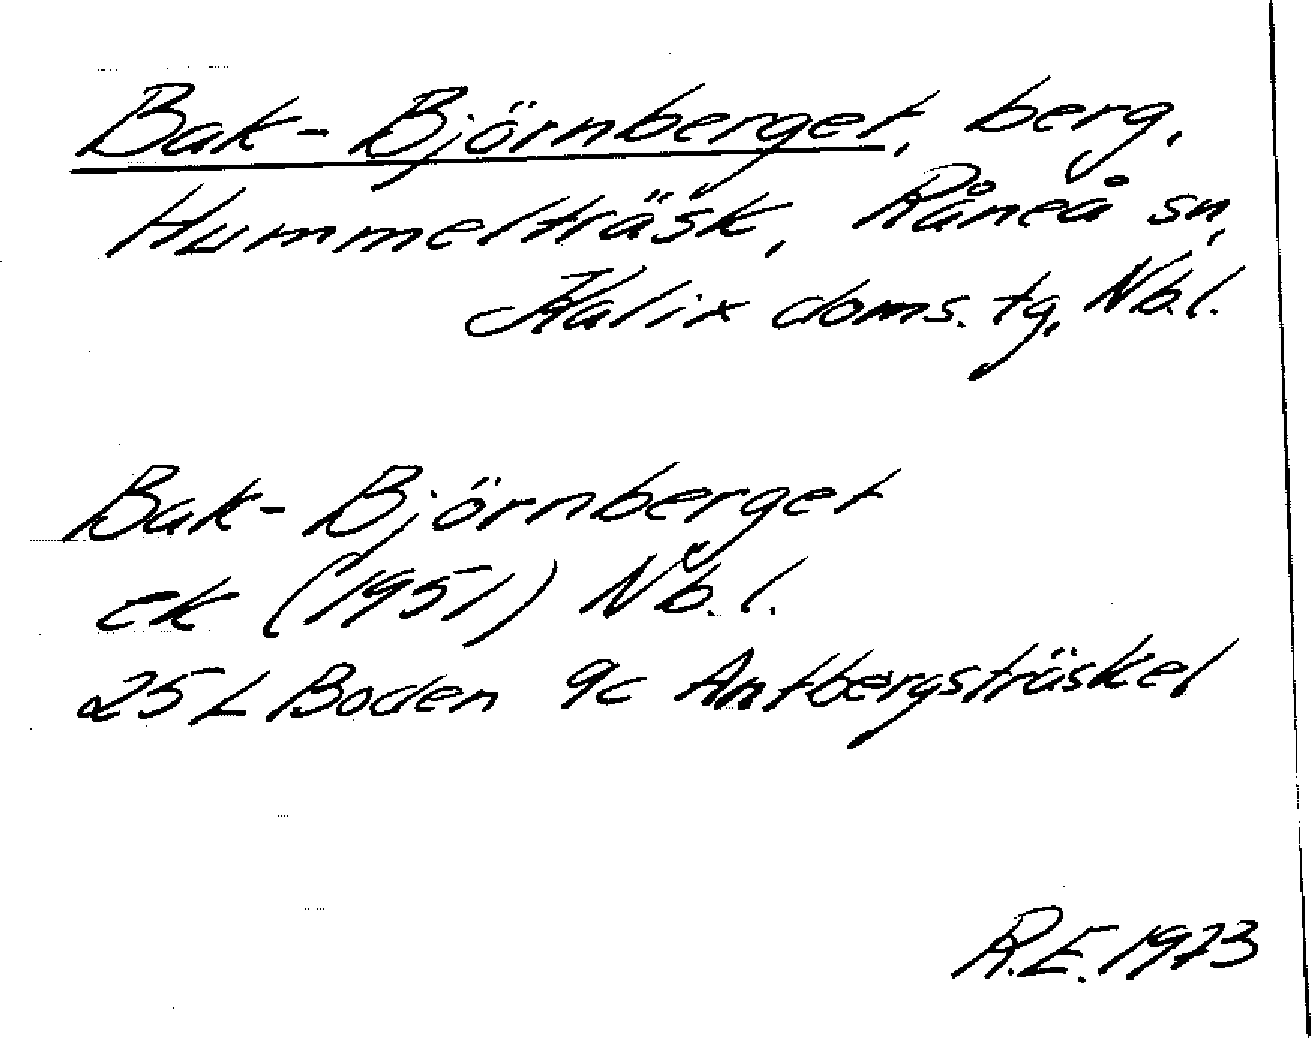 Bak-Björnberget, berg,
Hummelträsk, Råneå sn,
Kalix doms. tg, Nb.l.
Bak-Björnberget
ek (1951) Nb.l.
25 L Boden 9c Antbergsträsket
R.E. 1973